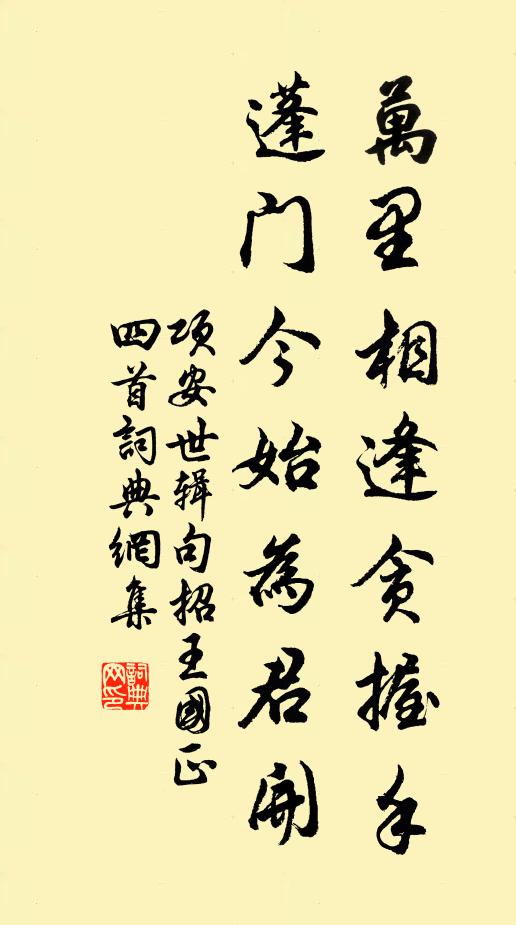 萬里相逢貪握手
蓬門今始為君開
項安世輯句招王國正
四首詞典網集
詞典網印